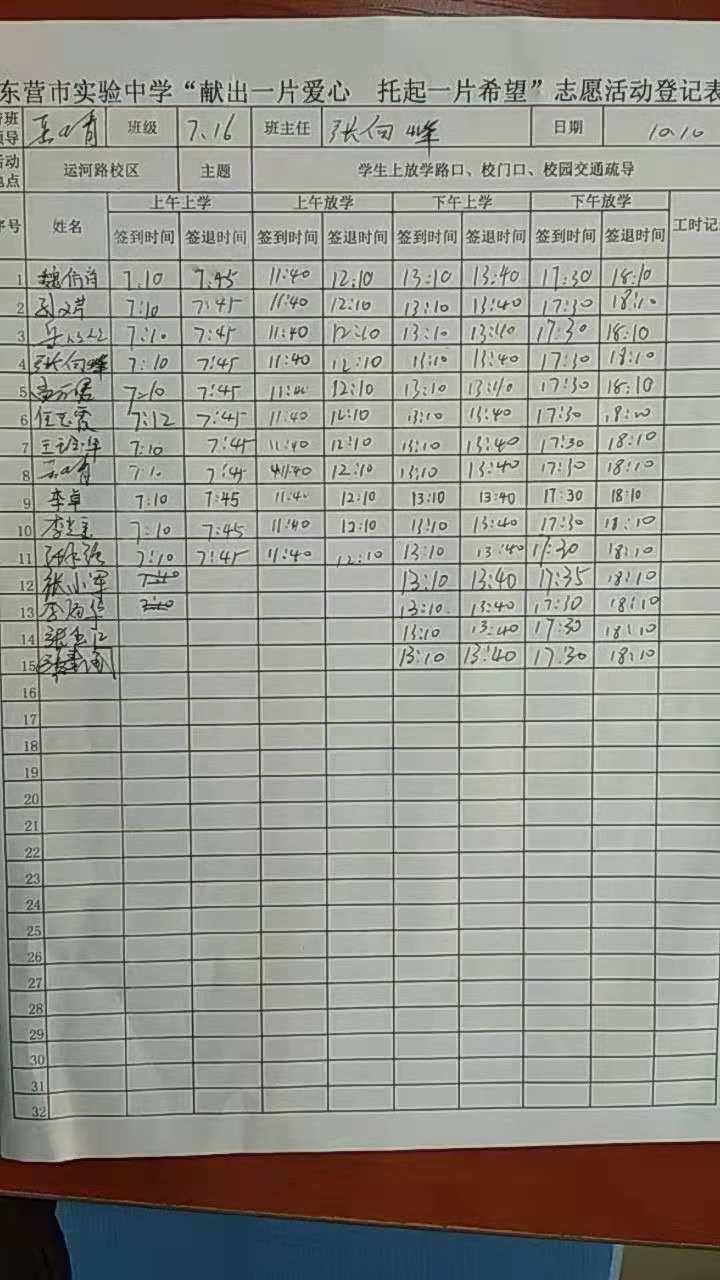 东营市实验中学“献出一片爱心 托起一片希望”志愿活动登记表
班级 7.16 班主任 张向峰 日期 10.10
运河路校区 主题 学生上放学路口、校门口、校园交通疏导
序号 姓名 上午上学 上午放学 下午上学 下午放学 工时记
签到时间 签退时间 签到时间 签退时间 签到时间 签退时间 签到时间 签退时间
1 7:10 7:45 11:40 12:10 13:10 13:40 17:30 18:10
2 7:10 7:45 11:40 12:10 13:10 13:40 17:30 18:10
3 7:10 7:45 11:40 12:10 13:10 13:40 17:30 18:10
4 张向峰 7:10 7:45 11:40 12:10 13:10 13:40 17:30 18:10
5 7:10 7:45 11:40 12:10 13:10 13:40 17:30 18:10
6 任志霞 7:12 7:45 11:40 12:10 13:10 13:40 17:30 18:10
7 7:10 7:45 11:40 12:10 13:10 13:40 17:30 18:10
8 7:10 7:45 11:40 12:10 13:10 13:40 17:30 18:10
9 李卓 7:10 7:45 11:40 12:10 13:10 13:40 17:30 18:10
10 7:10 7:45 11:40 12:10 13:10 13:40 17:30 18:10
11 7:10 7:45 11:40 12:10 13:10 13:40 17:30 18:10
12 张小军 13:10 13:40 17:35 18:10
13 13:10 13:40 17:30 18:10
14 13:10 13:40 17:30 18:10
15 13:10 13:40 17:30 18:10
16
17
18
19
20
21
22
23
24
25
26
27
28
29
30
31
32